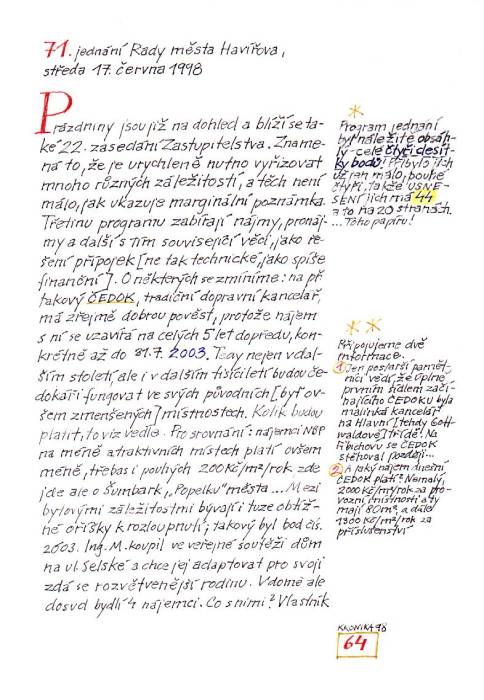 71. jednání Rady města Havířova,
středa 17. června 1998
Prázdniny jsou již na dohled a blíží se ta-
ké 22. zasedání Zastupitelstva. Zname-
ná to, že je urychleně nutno vyřizovat
mnoho různých záležitostí, a těch není
málo, jak ukazuje marginální poznámka.
Třetinu programu zabírají nájmy, pronáj-
my a další s tím související věci, jako ře-
šení přípojek [ne tak technické, jako spíše
finanční]. O některých se zmíníme: na př.
takový ČEDOK, tradiční dopravní kancelář,
má zřejmě dobrou pověst, protože nájem
s ní se uzavírá na celých 5 let dopředu, kon-
krétně až do 31.7. 2003. Tedy nejen v dal-
ším století, ale i v dalším tisíciletí budou če-
dokáři fungovat ve svých původních [byť ov-
šem zmenšených] místnostech. Kolik budou
platit, to viz vedle. Pro srovnání: nájemci NBP
na méně atraktivních místech platí ovšem
méně, třebas i pouhých 200 Kč/m²/rok zde
jde ale o Šumbark, „Popelku" města... Mezi
bytovými záležitostmi bývají i tuze obtíž-
né oříšky k rozlousknutí; takový byl bod čís.
2603. Ing. M. koupil ve veřejné soutěži dům
na ul. Selské a chce jej adaptovat pro svoji
zdá se rozvětvenější rodinu. V domě ale
dosud bydlí 4 nájemci. Co s nimi? Vlastník
*
Program jednání
byl náležitě obsáh-
lý - celé čtyři desít-
ky bodů! Přibylo jich
už jen málo, pouhé
čtyři, takže USNE-
SENÍ jich má 44
a to na 20 stranách.
... Toho papíru!
**
Připojujeme dvě
informace.
1 Jen postarší pamět-
níci vědí, že úplně
prvním sídlem začí-
najícího ČEDOKU byla
malinká kancelář
na Hlavní [tehdy Gott-
waldově] třídě. Na
Říbichovu se ČEDOK
stěhoval později...
2 A jaký nájem dnešní
ČEDOK platí? Nemalý,
2000 Kč/m²/rok za pro-
vozní místnosti a ty
mají 80 m², a dále
1300 Kč/m²/rok za
příslušenství
KRONIKA 98
64